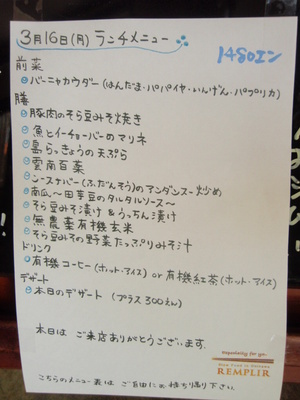 3月16日(月) ランチメニュー
1480エン
前菜
バーニャカウダー(はんだま・パパイヤ・いんげん・パプリカ)
膳
豚肉のそら豆みそ焼き
魚とイーチョーバーのマリネ
島らっきょうの天ぷら
雲南百薬
シースナバー(ふだんそう)のアンダンスー炒め
南瓜〜田芋豆のタルタルソース〜
そら豆みそ漬け&うっちん漬け
無農薬有機玄米
そら豆みその野菜たっぷりみそ汁
ドリンク
有機コーヒー(ホット・アイス) or 有機紅茶(ホット・アイス)
デザート
本日のデザート(プラス300えん)
本日は ご来店ありがとうございます。
REMPLIR
こちらのメニュー表は ご自由にお持ち帰り下さい